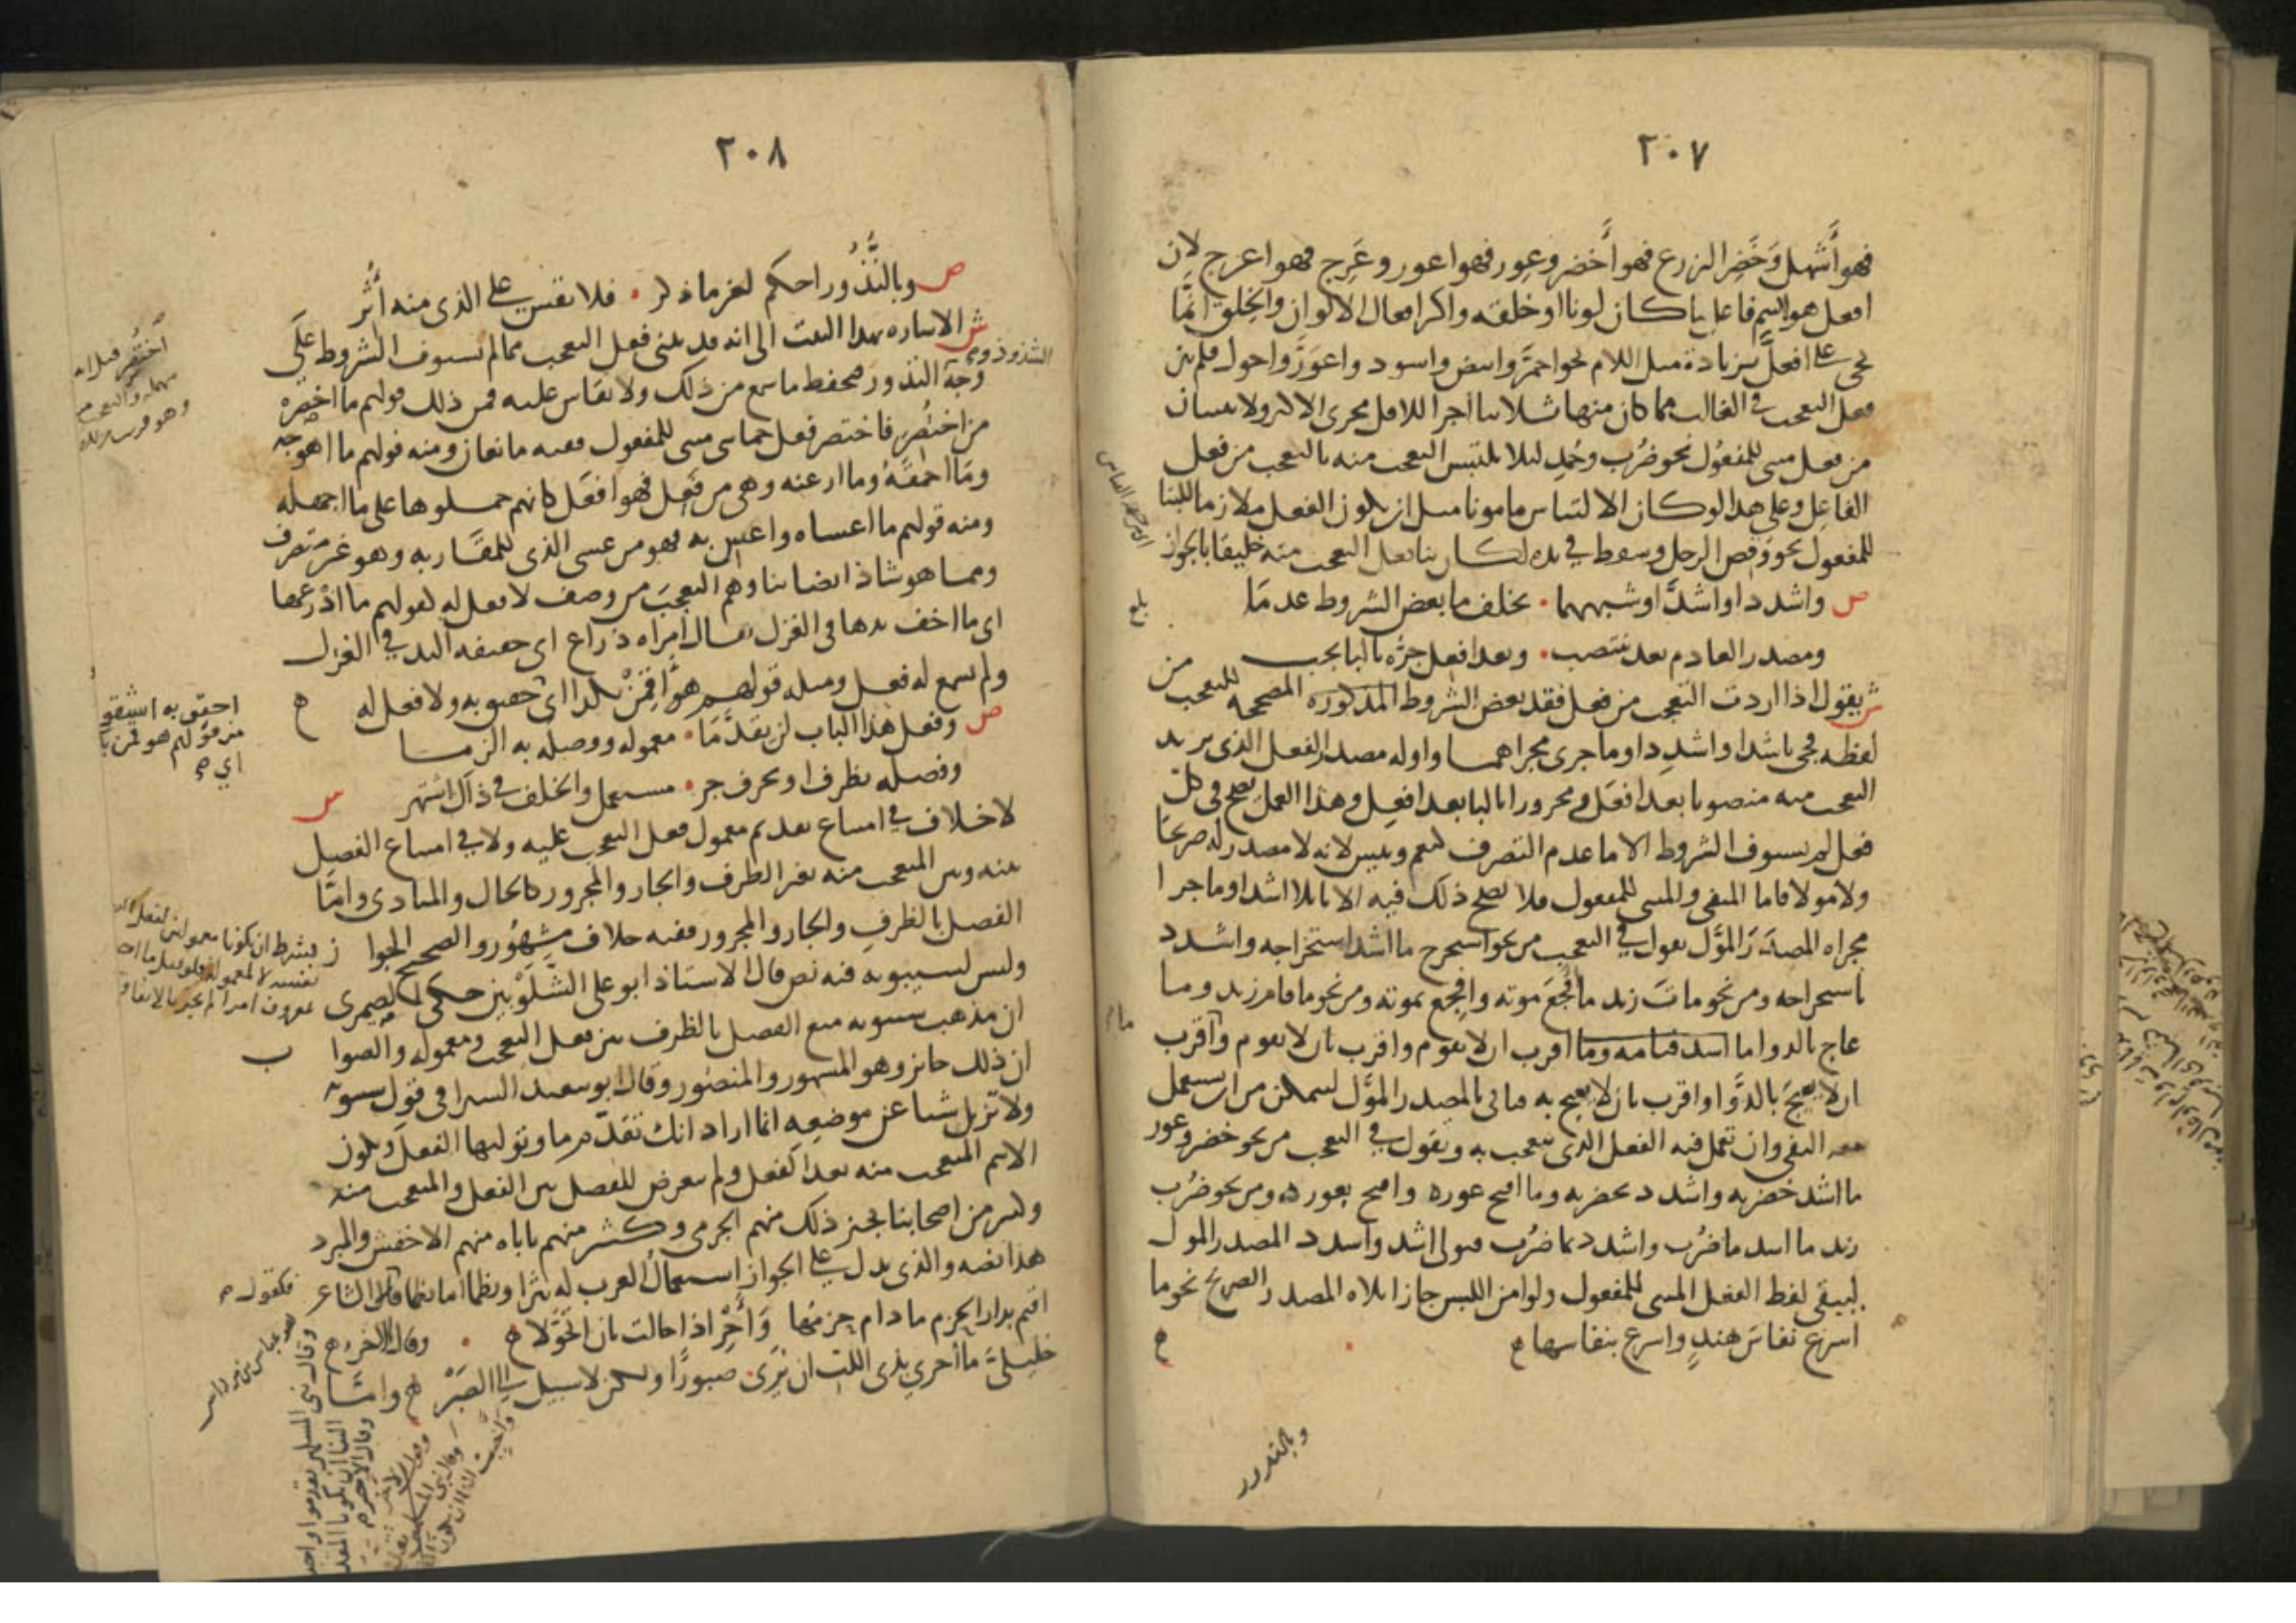 ٢٠٧
فهو أشهل وخضر الزرع فهو أخضر وعور فهو اعور وعرج فهو اعرج لان
افعل هو اسم فاعل ما كان لونا او خلقه واكثر افعال الالوان والخلق انما
تجي على افعل بزيادة مثل اللام نحو احمر وابيض واسود واعور واحول فلم يبن
فعل التعجب في الغالب مما كان منها ثلاثيا اجراء للاقل مجرى الاكثر ولا يبنيان
من فعل مبني للمفعول نحو ضرب وحمد ليلا يلتبس التعجب منه بالتعجب من فعل
الفاعل وعلى هذا لو كان الالتباس مامونا مثل ان يكون الفعل ملازما للبنا
للمفعول نحو وقص الرجل وسقط في يده لكان بنا فعل التعجب منه خليقا بالجواز
ص واشدد او اشد او شبههما ٠ يخلف ما بعض الشروط عدما
ومصدر العادم بعد ينتصب ٠ وبعد افعل جره بالبا يجب
ش يقول اذا اردت التعجب من فعل فقد بعض الشروط المذكوره المصححه للتعجب من
لفظه فجى باشد او اشدد او ما جرى مجراهما واوله مصدر الفعل الذى تريد
التعجب منه منصوبا بعد افعل ومجرورا بالبا بعد افعل وهذا العمل يصح في كل
فعل لم يستوف الشروط الا ما عدم التصرف كنعم وبيس لانه لا مصدر له صريحا
ولا مولا فاما المنفى والمبنى للمفعول فلا يصح ذلك فيه الا بايلا اشد او ما جرا
مجراه المصدر المؤل تقول في التعجب من نحو استخرج ما اشد استخراجه واشدد
باستخراجه ومن نحو مات زيد ما افجع موته وافجع بموته ومن نحو ما قام زيد وما
عاج بالدوا ما اقرب ان لا يقوم واقرب بان لا يقوم وأقرب
ان لا يعيج بالدوا واقرب بان لا يعيج به فاتى بالمصدر المؤل ليتمكن من ان يستعمل
معه النفى وان تعمل فيه الفعل الذى يتعجب به وتقول في التعجب من نحو خضر وعور
ما اشد خضرته واشدد بخضرته وما اقبح عوره واقبح بعوره ومن نحو ضرب
زيد ما اشد ما ضرب واشدد بما ضرب فتولى اشد واشدد المصدر المول
ليبقى لفظ الفعل المبنى للمفعول ولو امن اللبس جاز ايلاه المصدر الصريح نحو ما
اسرع نفاس هند واسرع بنفاسها
بلغ
وبالندور
٢٠٨
ص وبالندور احكم لغير ما ذكر ٠ فلا تقس على الذى منه أثر
ش الاشاره بهذا البيت الى انه قد يبنى فعل التعجب مما لم يستوف الشروط على
وجه الندور فيحفظ ما سمع من ذلك ولا يقاس عليه فمن ذلك قولهم ما اخصره
من اختصر فاختصر فعل خماسى مبنى للمفعول ففيه مانعان ومنه قولهم ما اهوجه
وما احمقه وما ارعنه وهى من فعل فهو افعل كانهم حملوها على ما اجهله
ومنه قولهم ما اعساه واعس به فهو من عسى الذى للمقاربه وهو غير متصرف
ومما هو شاذ ايضا بناوهم التعجب من وصف لا فعل له كقولهم ما اذرعها
اى ما اخف يدها في الغزل يقال امراه ذراع اى خفيفه اليد في الغزل
ولم يسمع له فعل ومثله قولهم هو اقمن بكذا اى احق به ولا فعل له
ص وفعل هذا الباب لن يقدما ٠ معموله ووصله به الزما
وفصله بظرف او بحرف جر ٠ مستعمل والخلف في ذاك اشتهر
ش
لا خلاف في امتناع تقديم معمول فعل التعجب عليه ولا في امتناع الفصل
بينه وبين المتعجب منه بغير الظرف والجار والمجرور كالحال والمنادى واما
الفصل بالظرف والجار والمجرور ففيه خلاف مشهور والصحيح الجوا ز
وليس لسيبويه فيه نص قال الاستاذ ابو على الشلوبين حكى الصيمرى
ان مذهب سيبويه منع الفصل بالظرف بين فعل التعجب ومعموله والصوا ب
ان ذلك جائز وهو المشهور والمنصور وقال ابو سعيد السيرافى قول سيبويه
ولا تزيل شيا عن موضعه انما اراد انك تقدم ما وتوليها الفعل ويكون
الاسم المتعجب منه بعد الفعل ولم يعرض للفصل بين الفعل والمتعجب منه
وكثير من اصحابنا يجيز ذلك منهم الجرمى وكثير منهم ياباه منهم الاخفش والمبرد
هذا نصه والذى يدل على الجواز استعمال العرب له نثرا ونظما اما نظما فكقول الشاعر
اقيم بدار الحزم ما دام حزمها وأحر اذا حالت بان اتحولا وقال الاخر
خليلى ما أحرى بذى اللب ان يرى صبورا ولكن لا سبيل الى الصبر واما
الشذوذ و
احق به اشتقو
من قولهم هو قمن بكذا
اي
بشرط ان يكونا معمولين لفعل